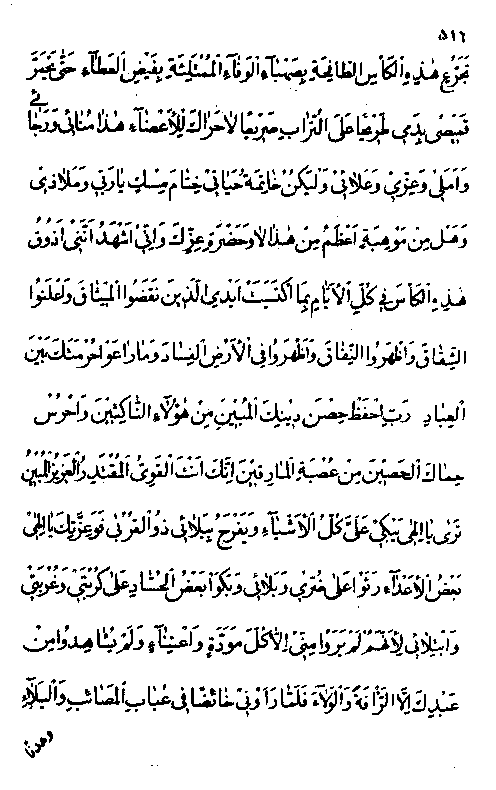 ٥١٦
تجرّع هٰذِهِ الكأس الطّافحة بصهباء الوفاء الممتلئة بفيض العطاء حتّى يحمرّ
قميصى بدمى طريحا على التّراب صريعا لا حراك للأعضاء هذا منائى ورجائى
وَأملى وعزّى وعلائى وليكن خاتمة حياتى ختام مسك ياربّى وملاذى
وهل من موهبة اعظم من هٰذا لا وحضرة عزّك وإنّى اشهدك أنّنى اذوق
هذه الكأس فى كلّ الأيّام بما اكتسبت أيدى الّذين نقضوا الميثاق واعلنوا
الشّقاق واظهروا النّفاق واظهروا فى الأرض الفساد وماراعوا حرمتك بين
العباد ربّ احفظ حصن دينك المبين من هؤلاء النّاكثين واحرس
حماك الحصين من عصبة المارقين انّك أنت القوىّ المقتدر العزيز المبين
ترى ياالهى يبكى علىّ كلّ الأشياء ويفرح ببلائى ذوالقربى فوعزّتك ياالهى
بعض الأعداء رثوا على ضرّى وبلائى وبكوا بعض الحسّاد على كربتى وغربتى
وابتلائى لأنّهم لم يروا منّى إلّا كلّ مودّة واعتناء ولم يشاهدوا من
عبدك إلّا الرّأفة والولاء فلمّا رأونى خائضا فى عباب المصائب والبلاء
وهدفا